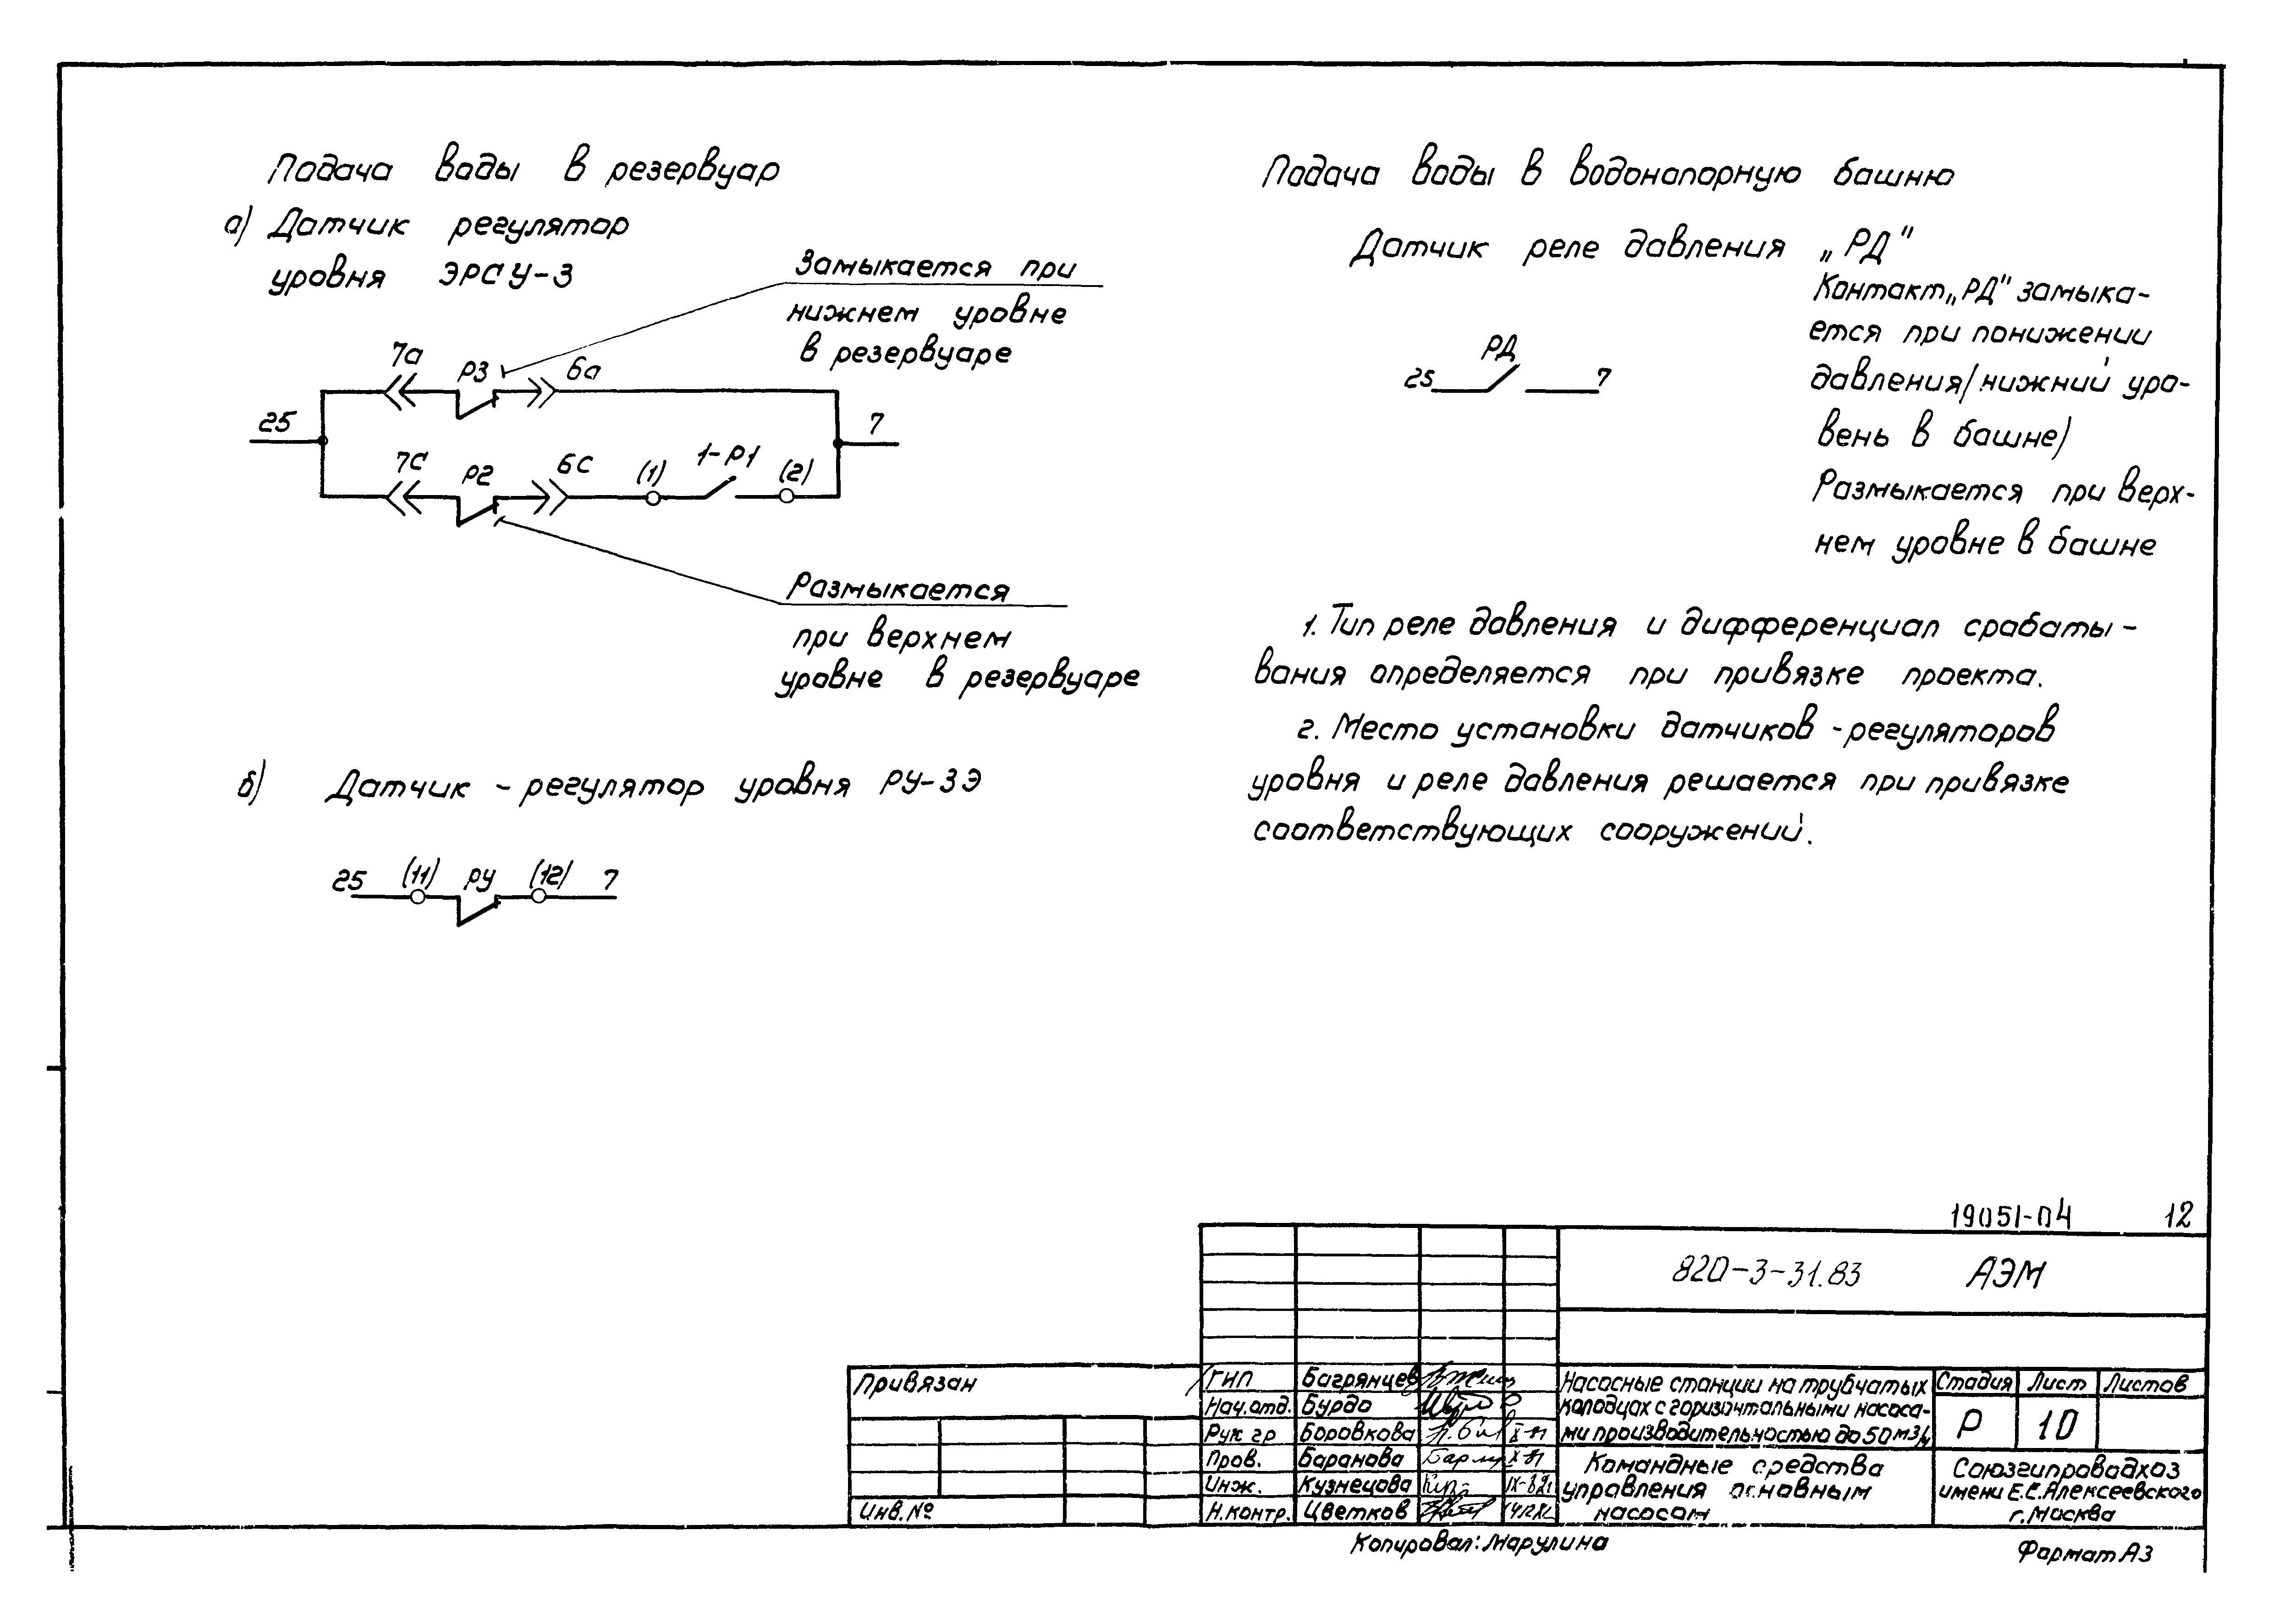 Подача воды в резервуар
а) Датчик регулятор
уровня ЭРСУ-3
Замыкается при
нижнем уровне
в резервуаре
7а Р3 6а
25 7
7С Р2 6С (1) 1-Р1 (2)
Размыкается
при верхнем
уровне в резервуаре
б) Датчик - регулятор уровня РУ-3Э
25 (11) РУ (12) 7
Подача воды в водонапорную башню
Датчик реле давления „РД"
Контакт „РД" замыка-
ется при понижении
давления/нижний уро-
вень в башне)
Размыкается при верх-
нем уровне в башне
25 РД 7
1. Тип реле давления и дифференциал срабаты-
вания определяется при привязке проекта.
2. Место установки датчиков -регуляторов
уровня и реле давления решается при привязке
соответствующих сооружений.
19051-04 12
820-3-31.83 АЭМ
Привязан
Инв.№
ГИП Багрянцев
Нач.отд. Бурдо
Рук гр Боровкова
Пров. Баранова
Инж. Кузнецова
Н.контр. Цветков
Насосные станции на трубчатых
колодцах с горизонтальными насоса-
ми производительностью до 50 м3/ч
Стадия Лист Листов
Р 10
Командные средства
управления основным
насосом
Союзгипроводхоз
имени Е.Е.Алексеевского
г.Москва
Копировал: Марулина
Формат А3